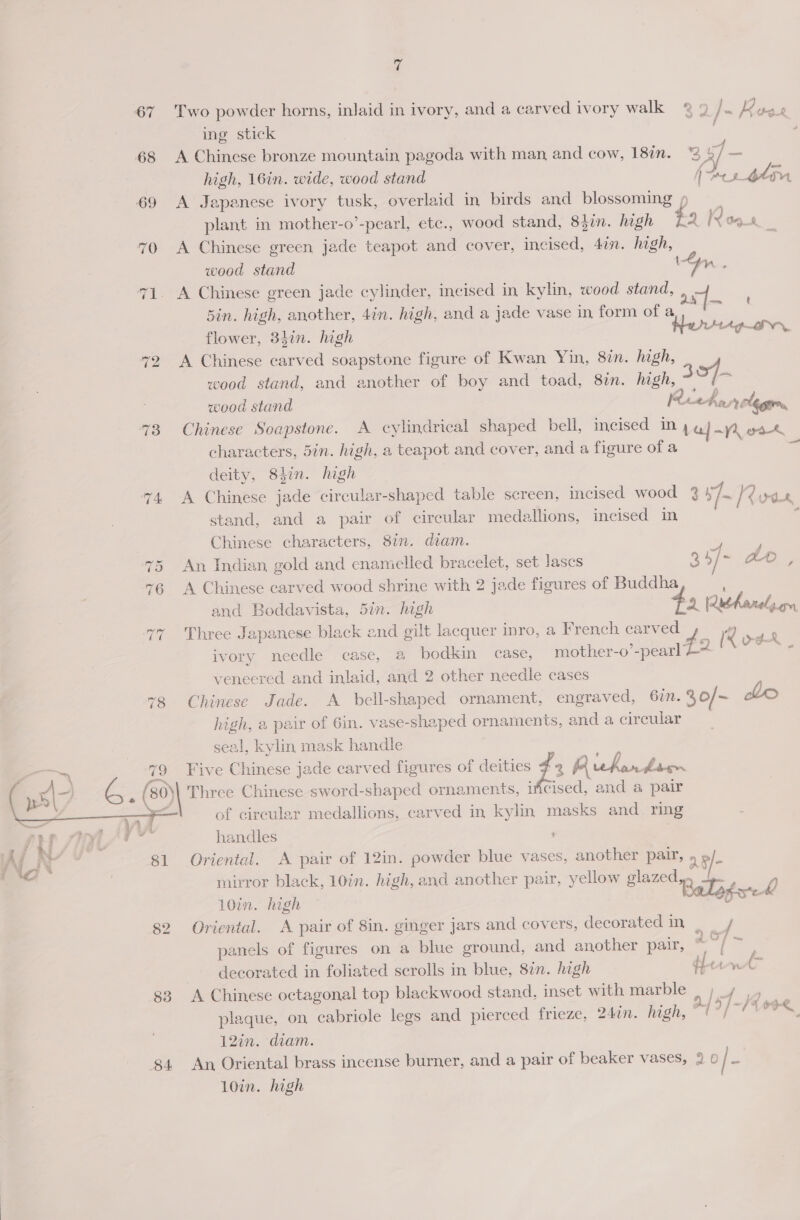 7
67 Two powder horns, inlaid in ivory, and a carved ivory walk 22/- Ross
ing stick
68 A Chinese bronze mountain pagoda with man and cow, 18in. 25/-
high, 16in. wide, wood stand
69 A Japanese ivory tusk, overlaid in birds and blossoming
plant in mother-o'-pearl, etc., wood stand, 8½in. high £2 Ross
70 A Chinese green jade teapot and cover, incised, 4in. high,
wood stand
71. A Chinese green jade cylinder, incised in kylin, wood stand, 25/-
5in. high, another, 4in. high, and a jade vase in form of a
flower, 3½in. high
72 A Chinese carved soapstone figure of Kwan Yin, 8in. high,
wood stand, and another of boy and toad, 8in. high, 30/-
wood stand Richardson
73 Chinese Soapstone. A cylindrical shaped bell, incised in
characters, 5in. high, a teapot and cover, and a figure of a
deity, 8½in. high
74 A Chinese jade circular-shaped table screen, incised wood 35/- Ross
stand, and a pair of circular medallions, incised in
Chinese characters, 8in. diam.
75 An Indian gold and enamelled bracelet, set lascs 35/- do
76 A Chinese carved wood shrine with 2 jade figures of Buddha,
and Boddavista, 5in. high £2 Richardson
77 Three Japanese black and gilt lacquer inro, a French carved
ivory needle case, a bodkin case, mother-o'-pearl £2 Ross
veneered and inlaid, and 2 other needle cases
78 Chinese Jade. A bell-shaped ornament, engraved, 6in. 30/- do
high, a pair of 6in. vase-shaped ornaments, and a circular
seal, kylin mask handle
79 Five Chinese jade carved figures of deities £3 Richardson
6. 80 Three Chinese sword-shaped ornaments, incised, and a pair
of circular medallions, carved in kylin masks and ring
handles
81 Oriental. A pair of 12in. powder blue vases, another pair,
mirror black, 10in. high, and another pair, yellow glazed,
10in. high
82 Oriental. A pair of 8in. ginger jars and covers, decorated in
panels of figures on a blue ground, and another pair,
decorated in foliated scrolls in blue, 8in. high Hunt
83 A Chinese octagonal top blackwood stand, inset with marble
plaque, on cabriole legs and pierced frieze, 24in. high, Ross
12in. diam.
84 An Oriental brass incense burner, and a pair of beaker vases, 20/-
10in. high